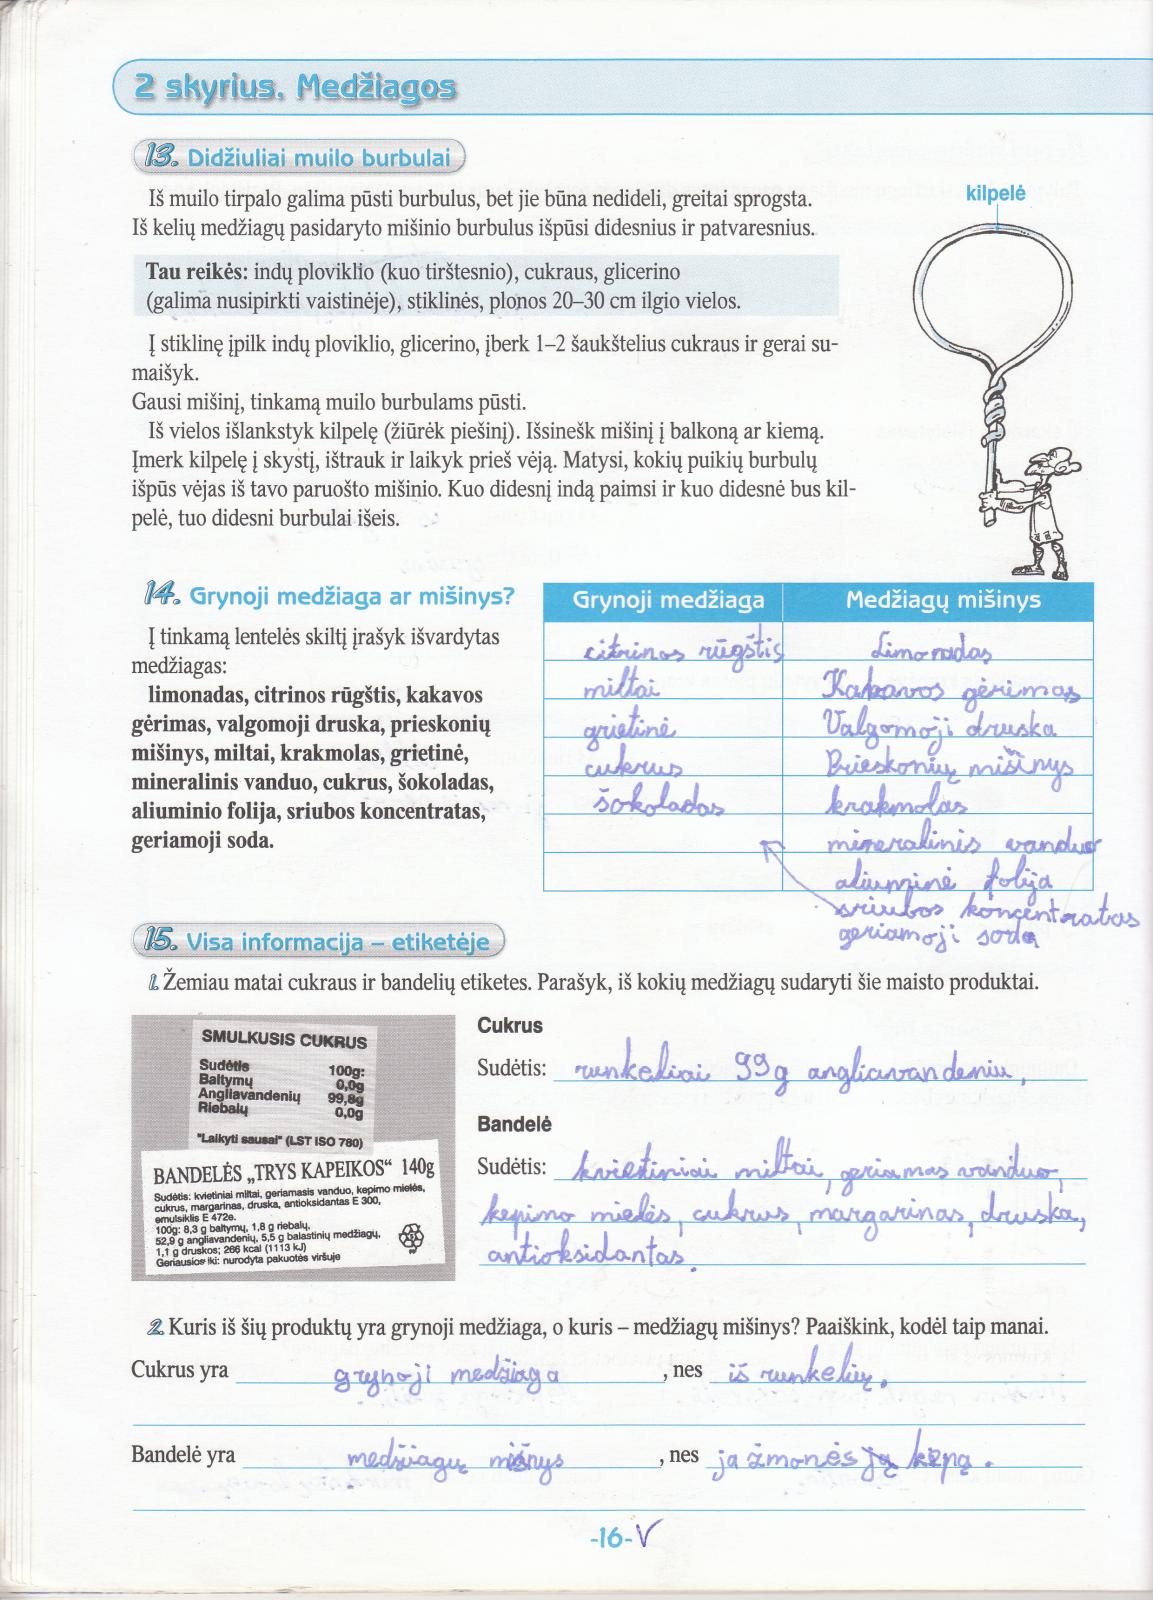 2 skyrius. Medžiagos
13. Didžiuliai muilo burbulai
Iš muilo tirpalo galima pūsti burbulus, bet jie būna nedideli, greitai sprogsta.
Iš kelių medžiagų pasidaryto mišinio burbulus išpūsi didesnius ir patvaresnius.
kilpelė
Tau reikės: indų ploviklio (kuo tirštesnio), cukraus, glicerino
(galima nusipirkti vaistinėje), stiklinės, plonos 20–30 cm ilgio vielos.
Į stiklinę įpilk indų ploviklio, glicerino, įberk 1–2 šaukštelius cukraus ir gerai su-
maišyk.
Gausi mišinį, tinkamą muilo burbulams pūsti.
Iš vielos išlankstyk kilpelę (žiūrėk piešinį). Išsinešk mišinį į balkoną ar kiemą.
Įmerk kilpelę į skystį, ištrauk ir laikyk prieš vėją. Matysi, kokių puikių burbulų
išpūs vėjas iš tavo paruošto mišinio. Kuo didesnį indą paimsi ir kuo didesnė bus kil-
pelė, tuo didesni burbulai išeis.
14. Grynoji medžiaga ar mišinys?
Į tinkamą lentelės skiltį įrašyk išvardytas
medžiagas:
limonadas, citrinos rūgštis, kakavos
gėrimas, valgomoji druska, prieskonių
mišinys, miltai, krakmolas, grietinė,
mineralinis vanduo, cukrus, šokoladas,
aliuminio folija, sriubos koncentratas,
geriamoji soda.
Grynoji medžiaga Medžiagų mišinys
citrinos rūgštis Limonadas
miltai Kakavos gėrimas
grietinė Valgomoji druska
cukrus Prieskonių mišinys
šokoladas krakmolas
mineralinis vanduo
aliuminė folija
sriubos koncentratas
geriamoji soda
15. Visa informacija – etiketėje
1. Žemiau matai cukraus ir bandelių etiketes. Parašyk, iš kokių medžiagų sudaryti šie maisto produktai.
SMULKUSIS CUKRUS
Sudėtis 100g:
Baltymų 0,0g
Angliavandenių 99,8g
Riebalų 0,0g
"Laikyti sausai" (LST ISO 780)
BANDELĖS „TRYS KAPEIKOS“ 140g
Sudėtis: kvietiniai miltai, geriamasis vanduo, kepimo mielės,
cukrus, margarinas, druska, antioksidantas E 300,
emulsiklis E 472e.
100g: 8,3 g baltymų, 1,8 g riebalų,
52,9 g angliavandenių, 5,5 g balastinių medžiagų,
1,1 g druskos; 266 kcal (1113 kJ)
Geriausios iki: nurodyta pakuotės viršuje
Cukrus
Sudėtis: runkeliai 99 g angliavandeniu,
Bandelė
Sudėtis: kvietiniai miltai, geriamas vanduo,
kepimo mielės, cukrus, margarinas, druska,
antioksidantas.
2. Kuris iš šių produktų yra grynoji medžiaga, o kuris – medžiagų mišinys? Paaiškink, kodėl taip manai.
Cukrus yra grynoji medžiaga , nes iš runkelių.
Bandelė yra medžiagų mišnys , nes ja žmonės ją kepą.
-16-